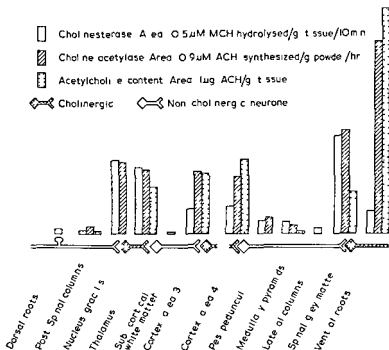 Chol nesterase A ea O 5µM MCH hydrolysed/g t ssue/10m n
Chol ne acetylase Area O 9µM ACH synthesized/g powde/hr
Acetylchol e content Area 1µg ACH/g t ssue
Cholinergic Non chol nerg c neurone
Dorsal roots
Post Spinal columns
Nucleus grac l s
Thalamus
Sub cort cal
white matter
Cortex a ea 3
Cortex a ea 4
Pes peduncul
Medulla y pyram ds
Late al columns
Spinal g ey matte
Vent al roots